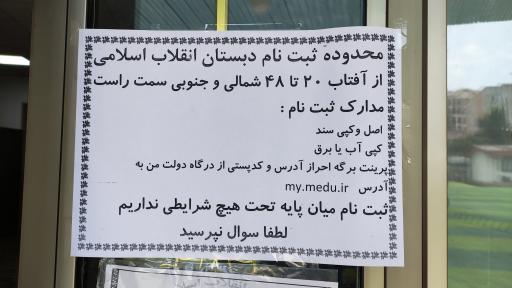 محدوده ثبت نام دبستان انقلاب اسلامی
از آفتاب ۲۰ تا ۴۸ شمالی و جنوبی سمت راست
مدارک ثبت نام :
اصل وکپی سند
کپی آب یا برق
پرینت برگه احراز آدرس و کدپستی از درگاه دولت من به
آدرس my.medu.ir
ثبت نام میان پایه تحت هیچ شرایطی نداریم
لطفا سوال نپرسید